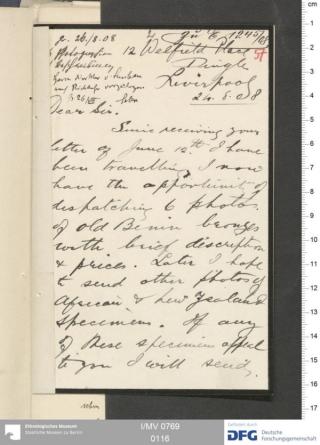 p. 26/8.08
E 1245/08
12 Welfield Place
Dingle
Liverpool
24.8.08
Dear Sir.
Since receiving your
letter of June 12th I have
been travelling, I now
have the opportunity of
dispatching 6 photos
of old Benin bronzes
with brief description
& prices. Later I hope
to send other photos of
African & New Zealand
Specimens. If any
of these specimens appeal
to you I will send.
cm
1
2
3
4
5
6
7
8
9
10
11
12
13
14
15
16
17
Ethnologisches Museum
Staatliche Museen zu Berlin
I/MV 0769
0116
Gefördert durch
DFG
Deutsche
Forschungsgemeinschaft